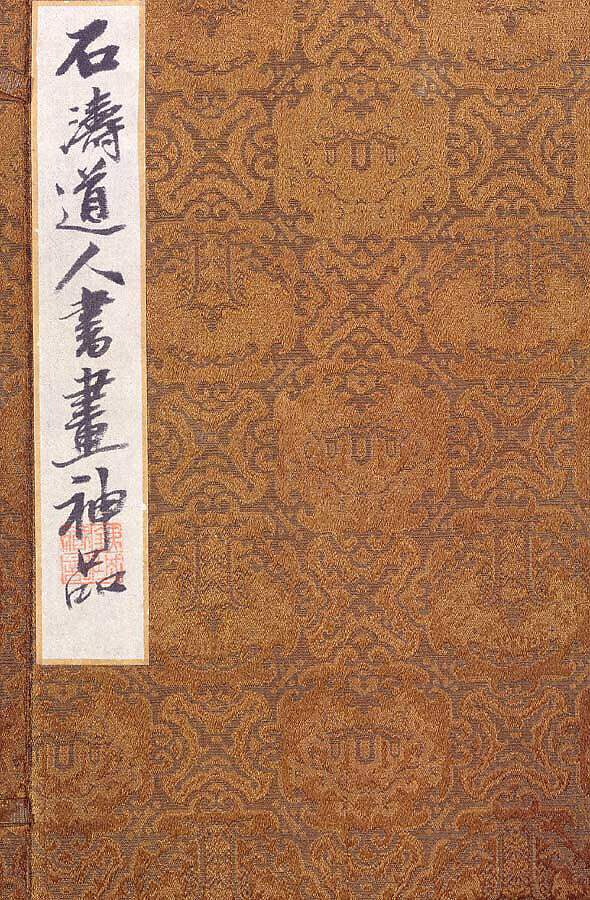 石濤道人書畫神品